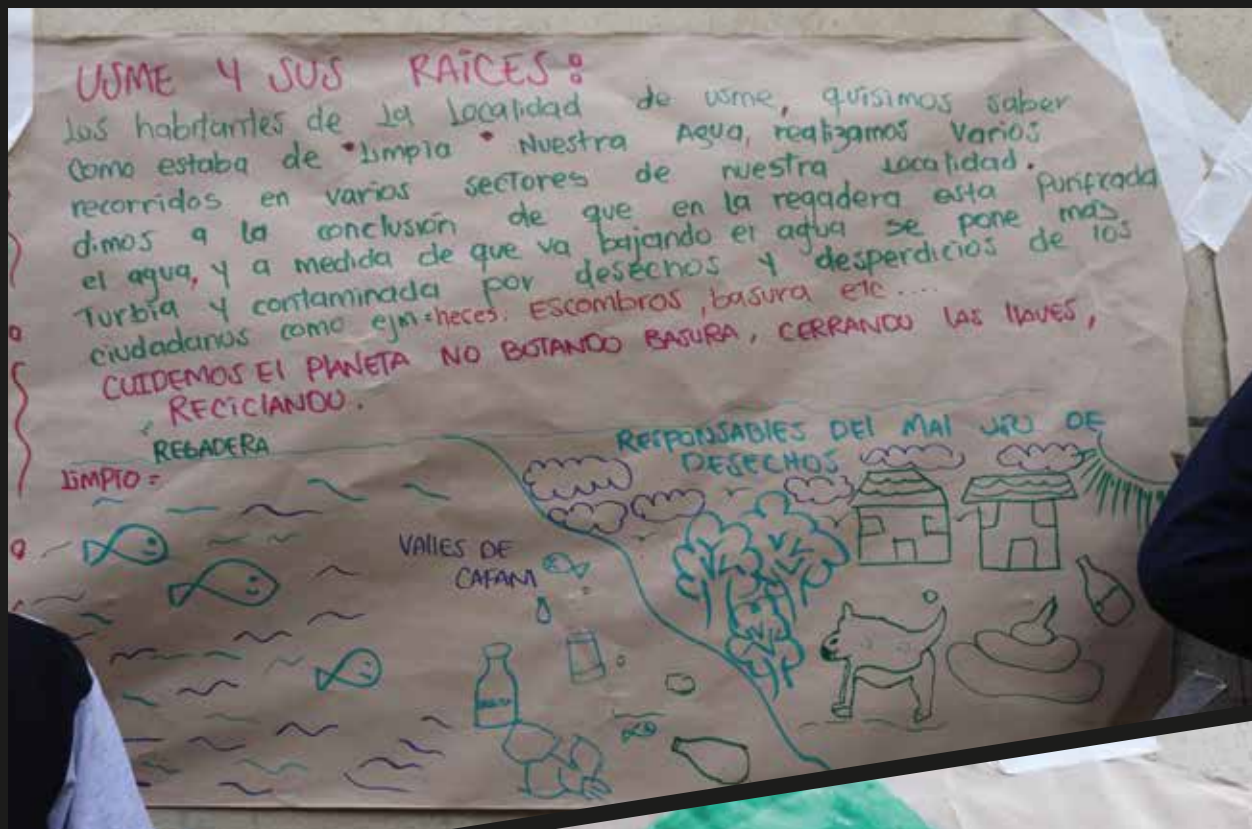 USME Y SUS RAÍCES:
Los habitantes de la Localidad de usme, quisimos saber
como estaba de "Limpia" Nuestra Agua, realizamos varios
recorridos en varios sectores de nuestra Localidad.
dimos a la conclusión de que en la regadera esta purificada
el agua, y a medida de que va bajando el agua se pone mas
Turbia y contaminada por desechos y desperdicios de los
ciudadanos como ejm=heces. Escombros, basura etc....
CUIDEMOS El PlANETA NO BOTANDO BASURA, CERRANDO LAS llAVES,
RECICLANDO.
REGADERA
RESPONSABLES DEl MAl USO DE
DESECHOS
LIMPIO=
VAllES DE
CAFAM